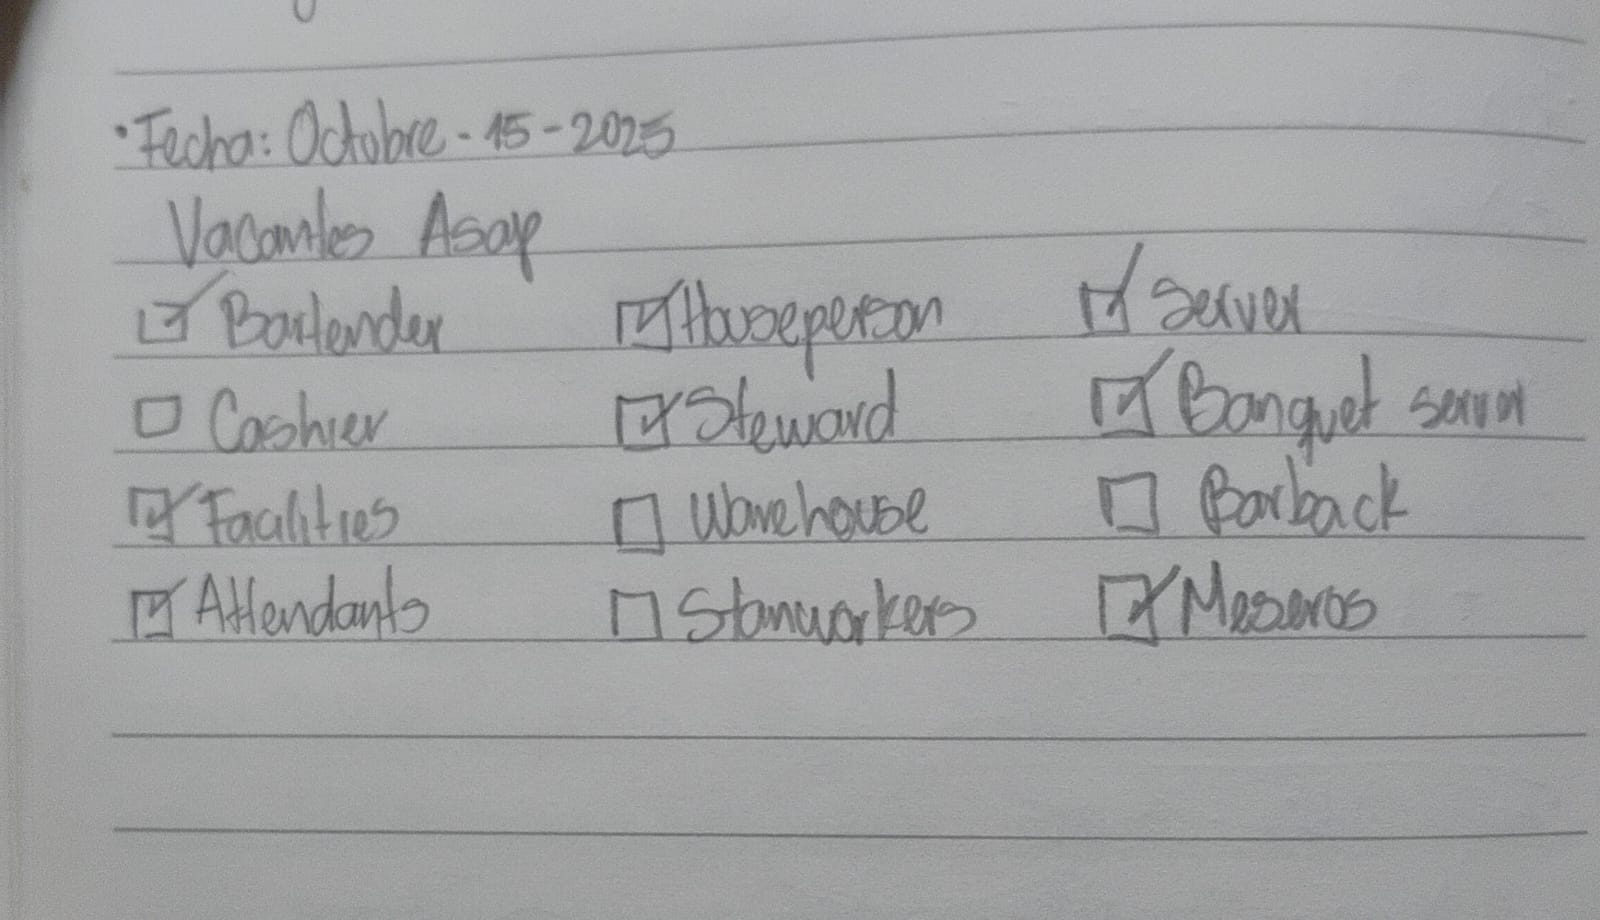 • Fecha: Octubre - 15 - 2025
Vacantes Asap
☑ Bartender ☑ Houseperson ☑ Server
☐ Cashier ☑ Steward ☑ Banquet server
☑ Facilities ☐ Warehouse ☐ Barback
☑ Attendants ☐ Stanworkers ☑ Meseros